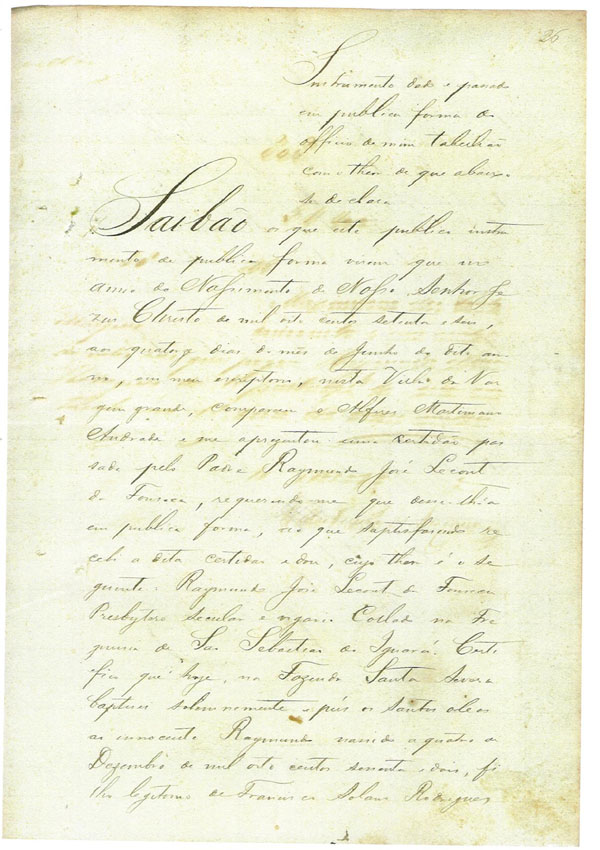 26
Instrumento dado e passado
em publica forma do
officio de mim tabelião
com o theor de que abaixo
se declara
Saibão os que este publico instru
mento de publica forma virem que no
anno do Nascimento de Nosso Senhor Je
zus Christo de mil oito centos setenta e seis,
aos quatorze dias do mês de Junho do dito an
no, em meu escriptorio, nesta Villa da Var
gem grande, compareceu o Alferes Martiniano
Andrade e me apresentou uma certidão pas
sada pelo Padre Raymundo José Lecont
da Fonseca, requerendo-me que désse-lhia
em publica forma, ao que saptisfazendo re
cebi a dita certidão e dou, cujo theor é o se
guinte: Raymundo José Lecont da Fonseca
Presbytero secular e vigario Collado na Fre
guesia de São Sebastião do Iguará. Certi
fico que hoje, na Fazenda Santa
baptisei solemnemente e pús os santos oleos
ao innocente Raymundo nascido a quatro de
Dezembro de mil oito centos sessenta e dois, fi
lho legitimo de Francisco Solano Rodrigues